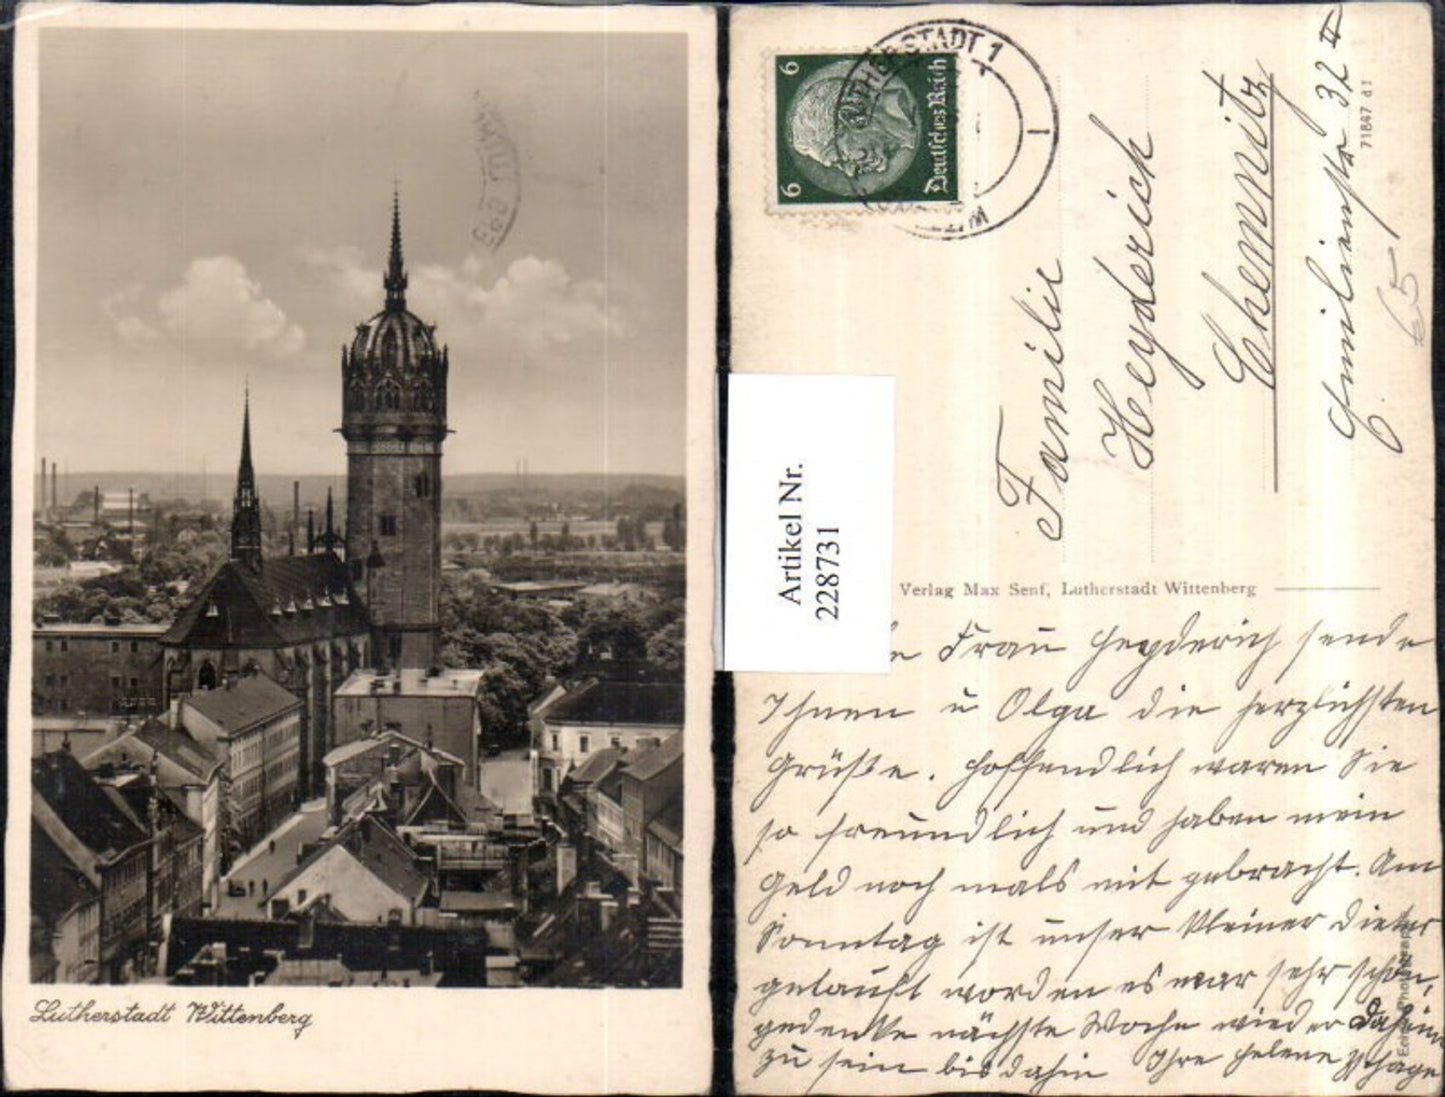 Lutherstadt Wittenberg
6
6
Deutsches Reich
LUTHERSTADT 1
Familie
Heyderich
Chemnitz
Emilienstr 32 II
65
71847 d 1
Artikel Nr.
228731
Verlag Max Senf, Lutherstadt Wittenberg
Frau Heyderich sende
Ihnen u Olga die herzlichsten
Grüße. Hoffendlich waren Sie
so freundlich und haben mein
Geld noch mals mit gebracht. Am
Sonntag ist unser Kleiner Dieter
getauft worden es war sehr schön,
gedenke nächste Woche wieder daheim
zu sein bis dahin Ihre Helene